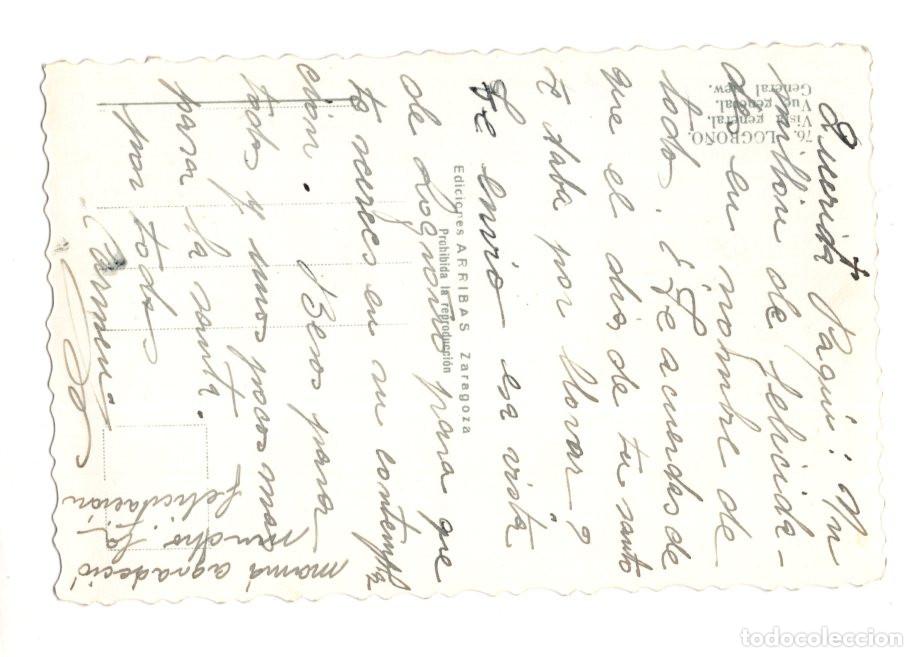 Querida Paqui: Un
millón de felicida-
des en nombre de
todo. ¿Te acuerdas de
que el día de tu santo
estaba por llorar?
Te envío esa vista
de Logroño para que
te recrees en su contempla
ción. Besos para
todos y unos pocos mas
para la santa.
por todos
Carmen
mamá agradeció
mucho la
felicitación
76. LOGROÑO.
Vista general.
Vue general.
General View.
Ediciones ARRIBAS Zaragoza
Prohibida la reproducción
todocoleccion.net